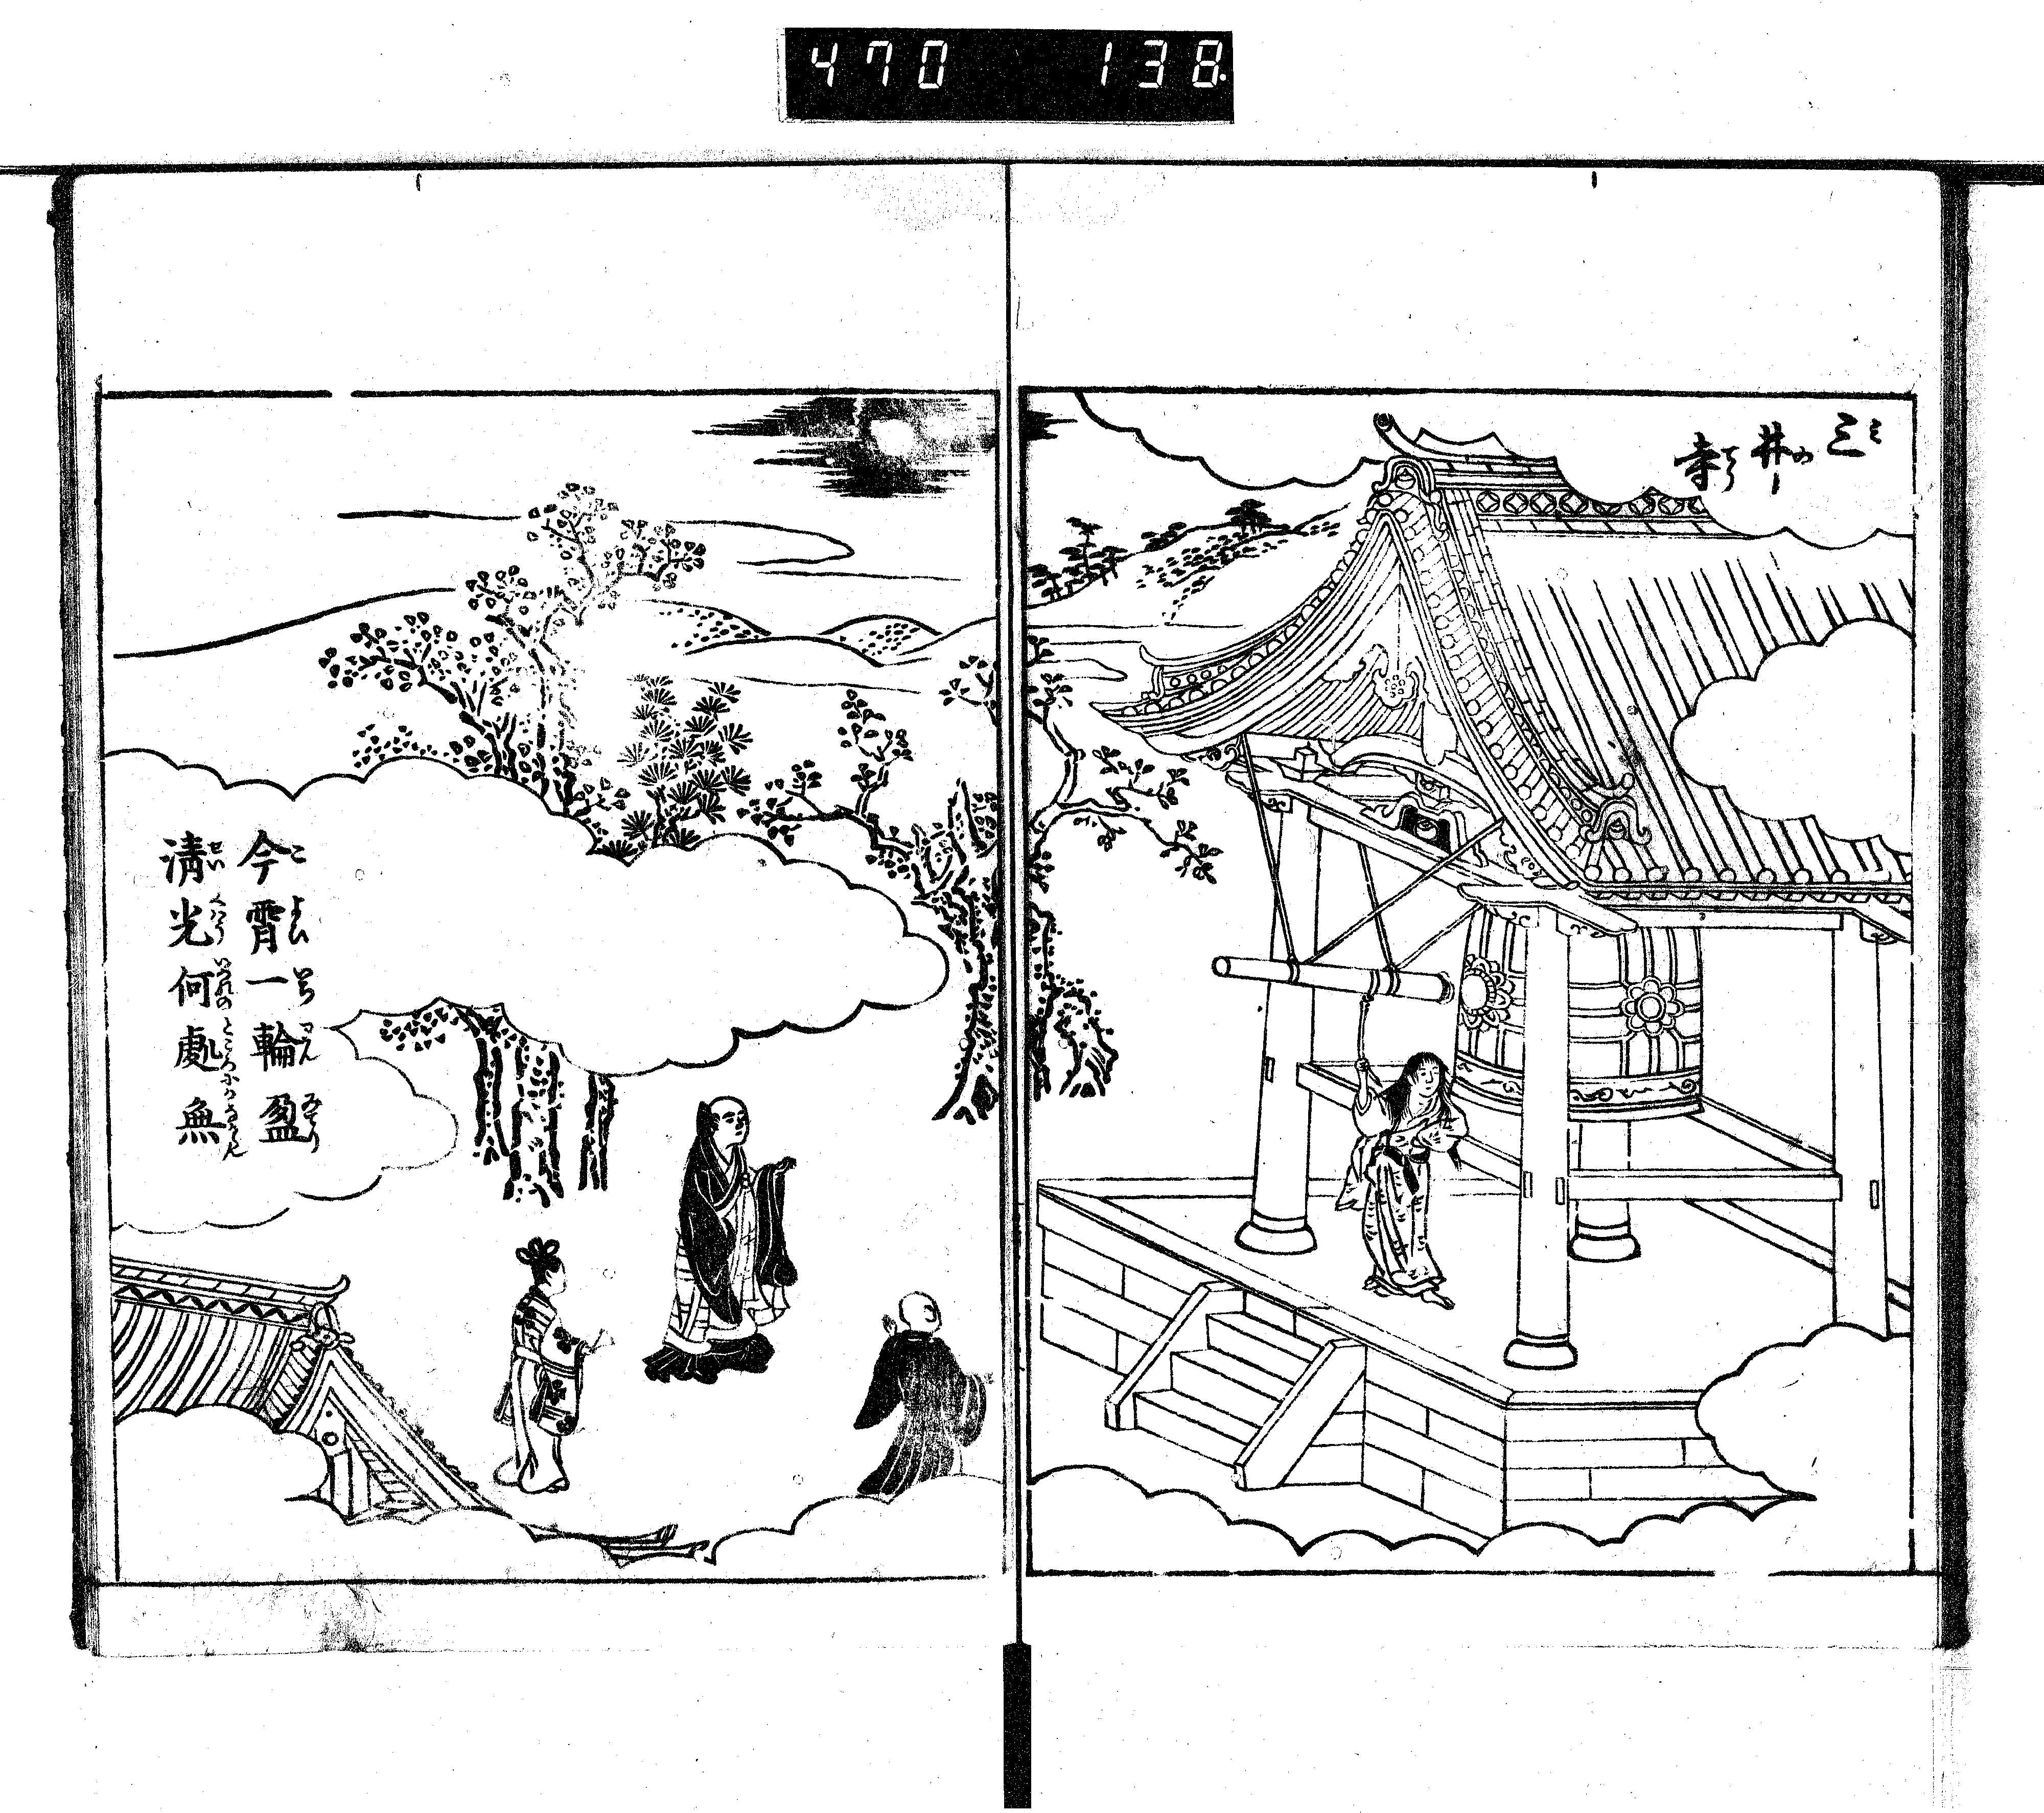 470 138
三井寺
今霄一輪盈
清光何處無